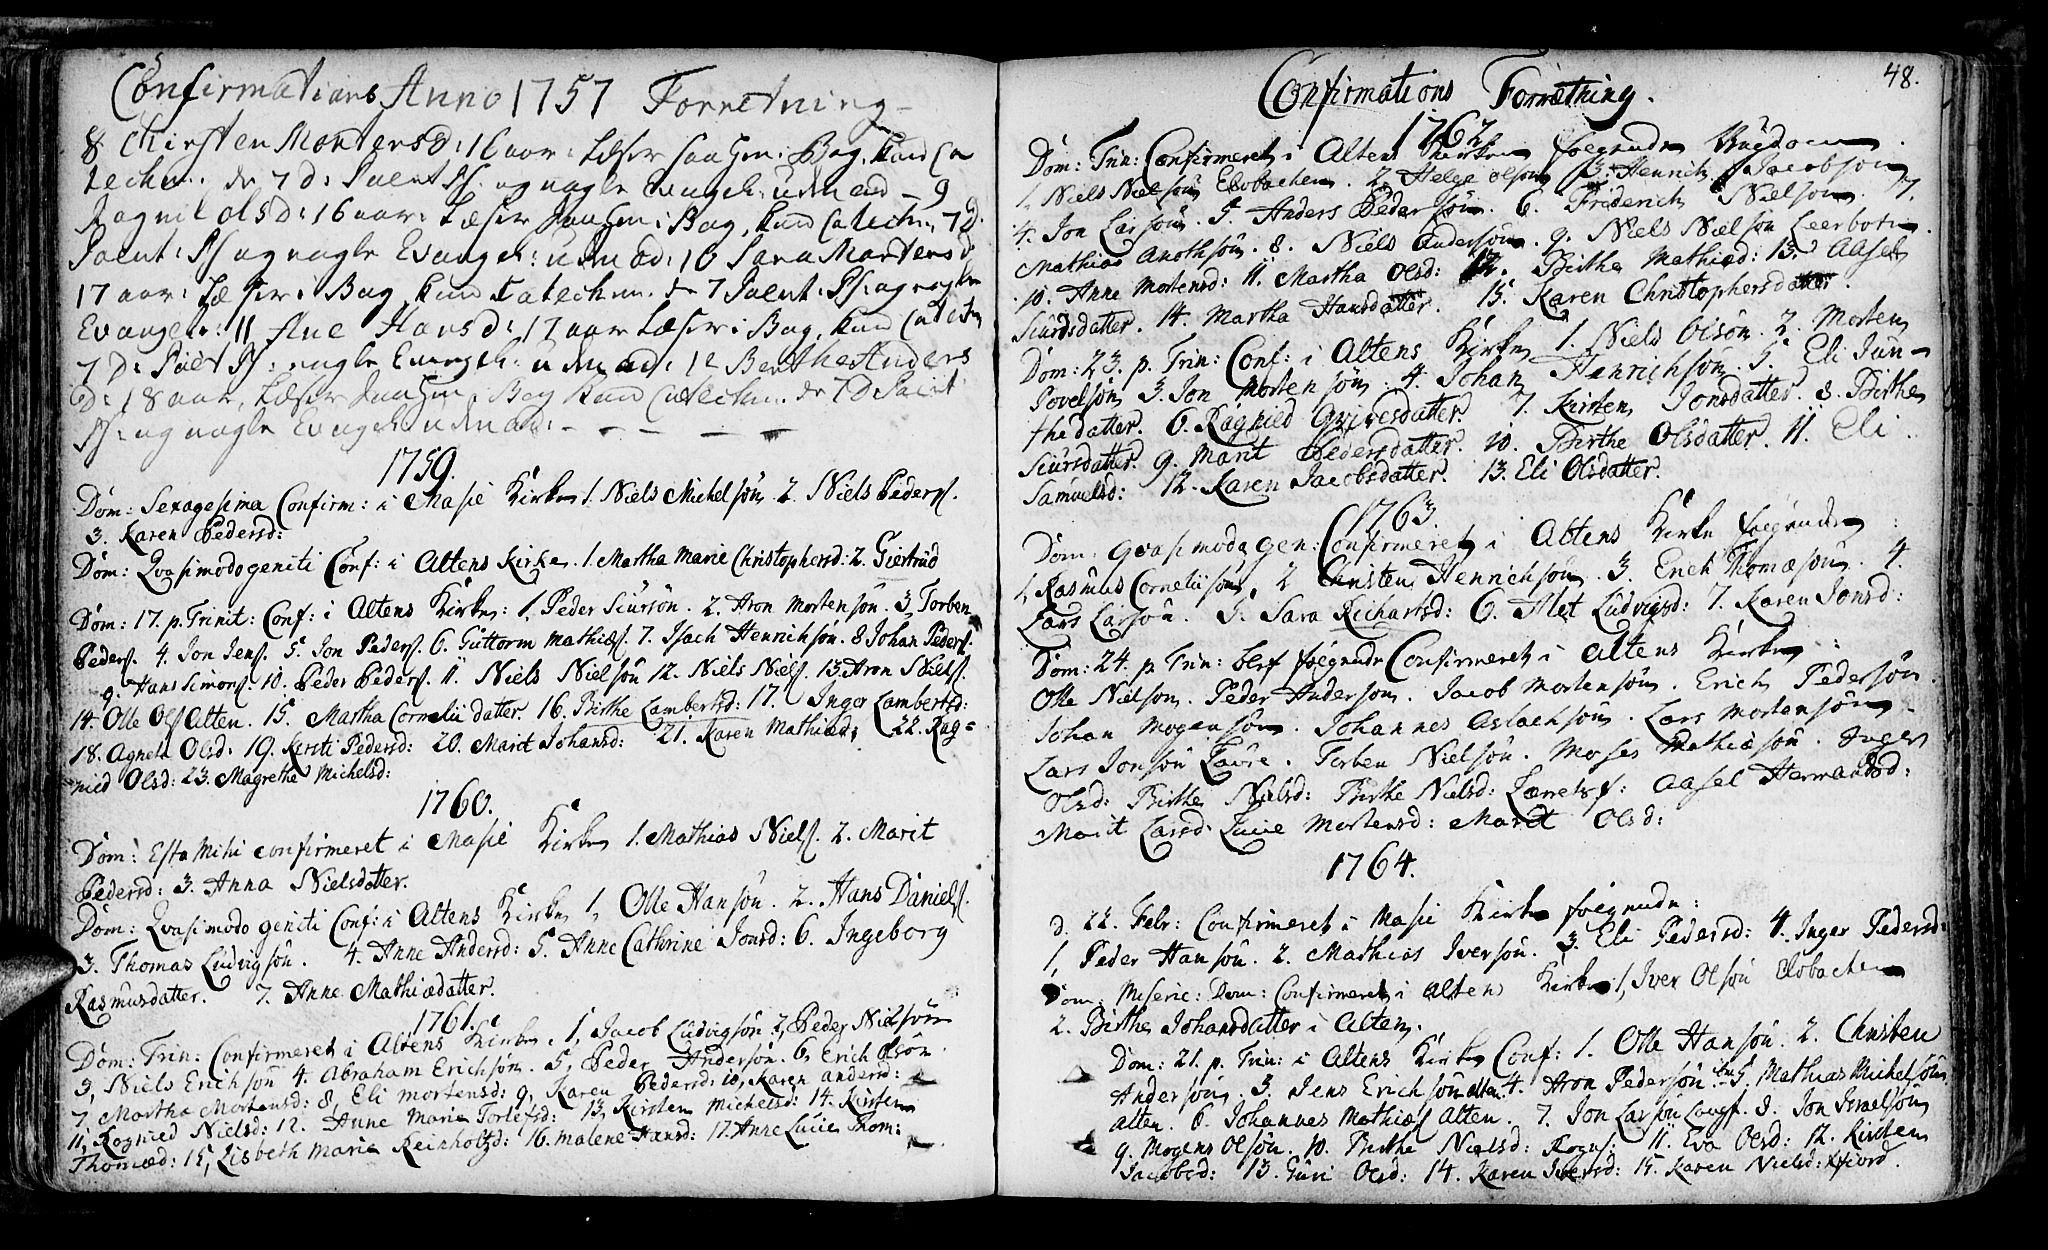 Confirmations Anno 1757 Forretning
8 Chirsten Mortensd: 16 aar: Læser i Bog, kand Ca
techm. de 7 d: Poenit Ps: og nogle Evangel: udenad – 9
Ragnil olsd: 16 aar: Læser i Bog, kand Catechm, 7 d.
Poenit: Ps og nogle Evangel: udenad: 10 Sara Mortensd
17 aar: Læser i Bog, kand Catechm. de 7 Poenit: Ps: og nogle
Evangel: 11 Ane Hansd: 17 aar Læser i Bog, kand Catechm
7 D: Poenit Ps: nogle Evangel: udenad: 12 Berthe Anders
D: 18 aar, Læser i Bog kand Catechm. de 7 D Poenit
Ps: og nogle Evangel: udenad: – – – – –
1759.
Dom: Sexagesima Confirm: i Masie Kirke 1. Niels Michelsön. 2. Niels Peders.
3. Karen Pedersd:
Dom: Qvasimodogeniti Conf: i Altens Kirke. 1. Martha Marie Christophersd: 2. Giertrud
Dom: 17. p. Trinit: Conf: i Altens Kirke: 1. Peder Siursön. 2. Aron Mortensön. 3. Torben
Peders. 4. Jon Jens. 5. Jon Peders. 6. Guttorm Mathies. 7. Isach Henrichsön. 8 Johan Peders.
9. Hans Simons. 10. Peder Peders. 11. Niels Nielsön 12. Niels Niels. 13. Aron Niels.
14. Olle Ols Alten. 15. Martha Cornelii datter. 16. Birthe Lambertsd: 17. Inger Lambertsd:
18. Agneta Olsd: 19. Kirsti Pedersd: 20. Marit Johansd: 21. Karen Mathiæd: 22. Rag=
nied Olsd: 23. Magrethe Michelsd:
1760.
Dom: Esto Mihi confirmeret i Masie Kirke 1. Mathias Niels. 2. Marit
Pedersd: 3. Anna Nielsdatter.
Dom: Qvasimodo geniti Conf: i Altens Kirke 1, Olle Hansön. 2. Hans Daniels.
3. Thomas Ludvigsön. 4. Anne Andersd: 5. Anne Cathrine Jonsd: 6. Ingeborg
Rasmusdatter. 7. Anne Mathiædatter.
1761.
Dom: Trin: Confirmeret i Altens Kirke, 1, Jacob Ludvigsön 2, Peder Nielsön
3, Niels Erichsön 4. Abraham Erichsön. 5, Peder Anderson. 6, Erich Olsön.
7, Martha Mortensd: 8, Eli Mortensd: 9, Karen Pedersd: 10, Karen Andersd:
11, Rognied Nielsd: 12. Anne Marie Torlefsd: 13, Kirsten Michelsd: 14. Kirsten
Thomæd: 15, Lisbeth Marie Reinholtsd: 16. Malene Hansd: 17. Anne Lucie Thom:
48.
Confirmations Forrætning.
1762
Dom: Trin: Confirmeret i Altens Kirke foegnede Ungdom.
1, Niels Nielsön Elvebachen. 2. Helge olsön 3. Henrich Jacobsön
4. Jon Larsön. 5. Anders Pedersön. 6. Friderich Nielsön. 7.
Mathias Anothsön. 8. Niels Andersön. 9. Niels Nielsön Leerbotn.
10. Anne Mortensd: 11. Martha Olsd: 12. Birthe Mathiæd: 13. Aasel
Siurdsdatter. 14. Martha Hansdatter. 15. Karen Christophersdatter.
Dom: 23. p. Trin: Conf: i Altens Kirke 1. Niels Olsön. 2. Morten
Povelsön 3. Jon Mortensön. 4. Johan Henrichsön. 5. Eli Jun-
thedatter. 6. Ragnied Gyiresdatter. 7. Kirsten Jonsdatter. 8. Birthe
Siursdatter. 9. Marit Pedersdatter. 10. Birthe Olsdatter. 11. Eli
Samuelsd: 12. Karen Jacobsdatter. 13. Eli Olsdatter.
1763.
Dom: Qvasimodogen: Confirmeret i Altens Kirke foegnende:
1, Rasmus Corneliisön, 2 Christen Henrichsön. 3. Erich Thomæsön. 4.
Lars Larsön. 5. Sara Richartsd: 6. Alet Ludvigsd: 7. Karen Jonsd:
Dom: 24. p. Trin: blef foegnede Confirmeret i Altens Kirke:
Olle Nielsön. Peder Andersön. Jacob Mortensön. Erich Pedersön.
Johan Mogensön. Johannes Aslachsön. Lars Mortensön.
Lars Jonsön Taure. Torben Nielsön. Moses Mathiæsön. Inger
Olsd: Birthe Nielsd: Birthe Nielsd: Aasel Hermandsd:
Marit Larsd. Lucie Mortensd: Marit Olsd:
1764.
d. 22. Febr: Confirmeret i Masie Kirke foegnede:
1, Peder Hansön. 2. Mathias Iversön. 3. Eli Pedersd: 4. Inger Pedersd:
Dom: Miseric: Dom: Confirmeret i Altens Kirke 1, Iver Olsön Elvebachen
2. Birthe Johansdatter i Alten.
Dom: 21. p. Trin: i Altens Kirke Conf: 1. Olle Hansön. 2. Christen
Andersön. 3. Jens Erichsön alten. 4. Aron Pedersön 5. Mathias Michelsön
alten. 6. Johannes Mathiæs Alten. 7. Jon Larsön Langf. 8. Jon Israelsön
9. Mogens Olsön. 10. Birthe Nielsd: 11. Eva Olsd: 12. Kirsten
Jacobsd: 13. Guri Olsd: 14. Karen Iversd: 15. Karen Nielsd: